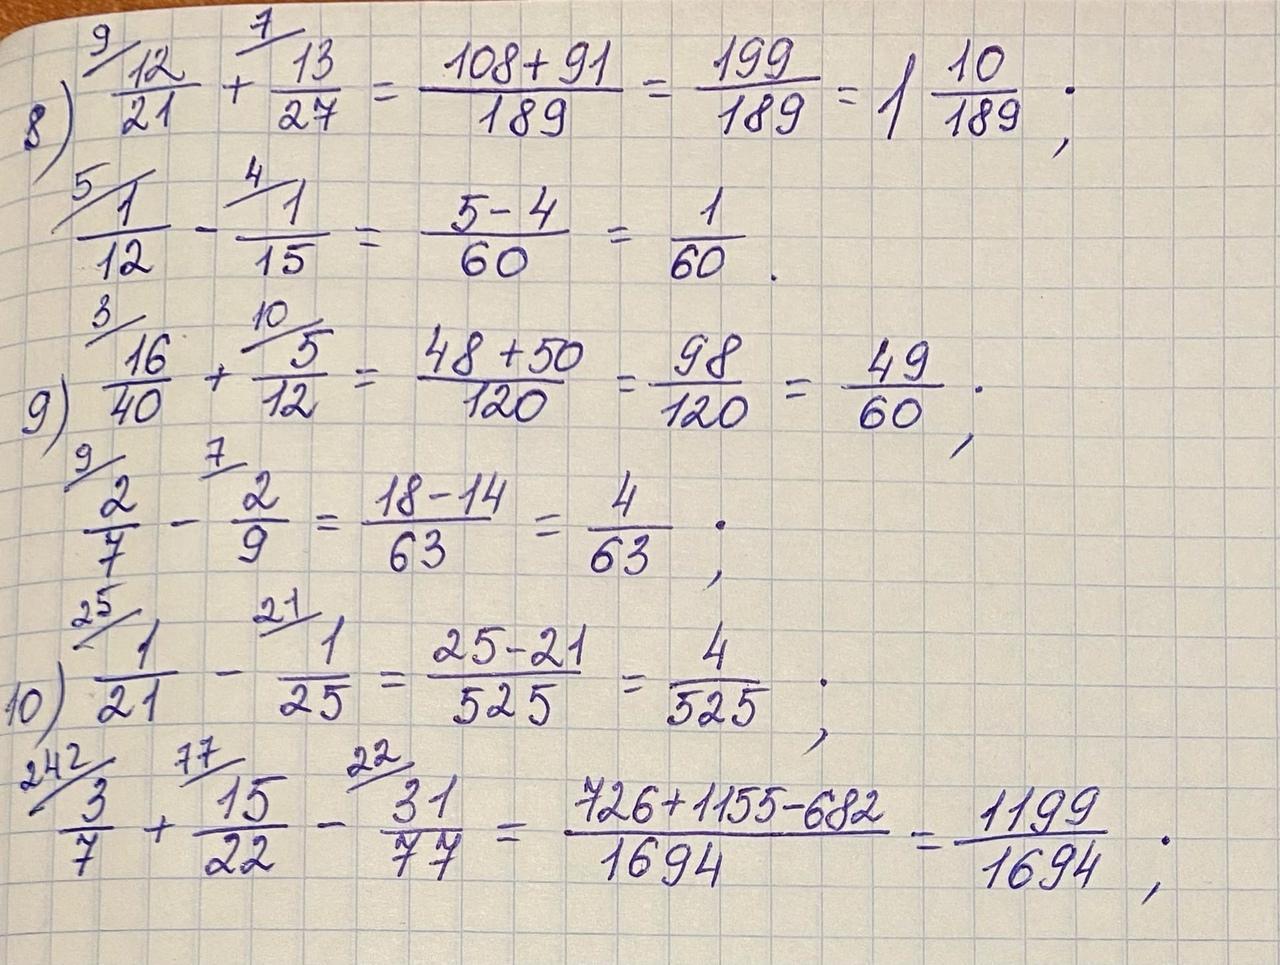 8) 9/ 12/21 + 7/ 13/27 = 108+91/189 = 199/189 = 1 10/189 ;
5/ 1/12 - 4/ 1/15 = 5-4/60 = 1/60 .
9) 3/ 16/40 + 10/ 5/12 = 48+50/120 = 98/120 = 49/60 ;
9/ 2/7 - 7/ 2/9 = 18-14/63 = 4/63 ;
10) 25/ 1/21 - 21/ 1/25 = 25-21/525 = 4/525 ;
242/ 3/7 + 77/ 15/22 - 22/ 31/77 = 726+1155-682/1694 = 1199/1694 ;